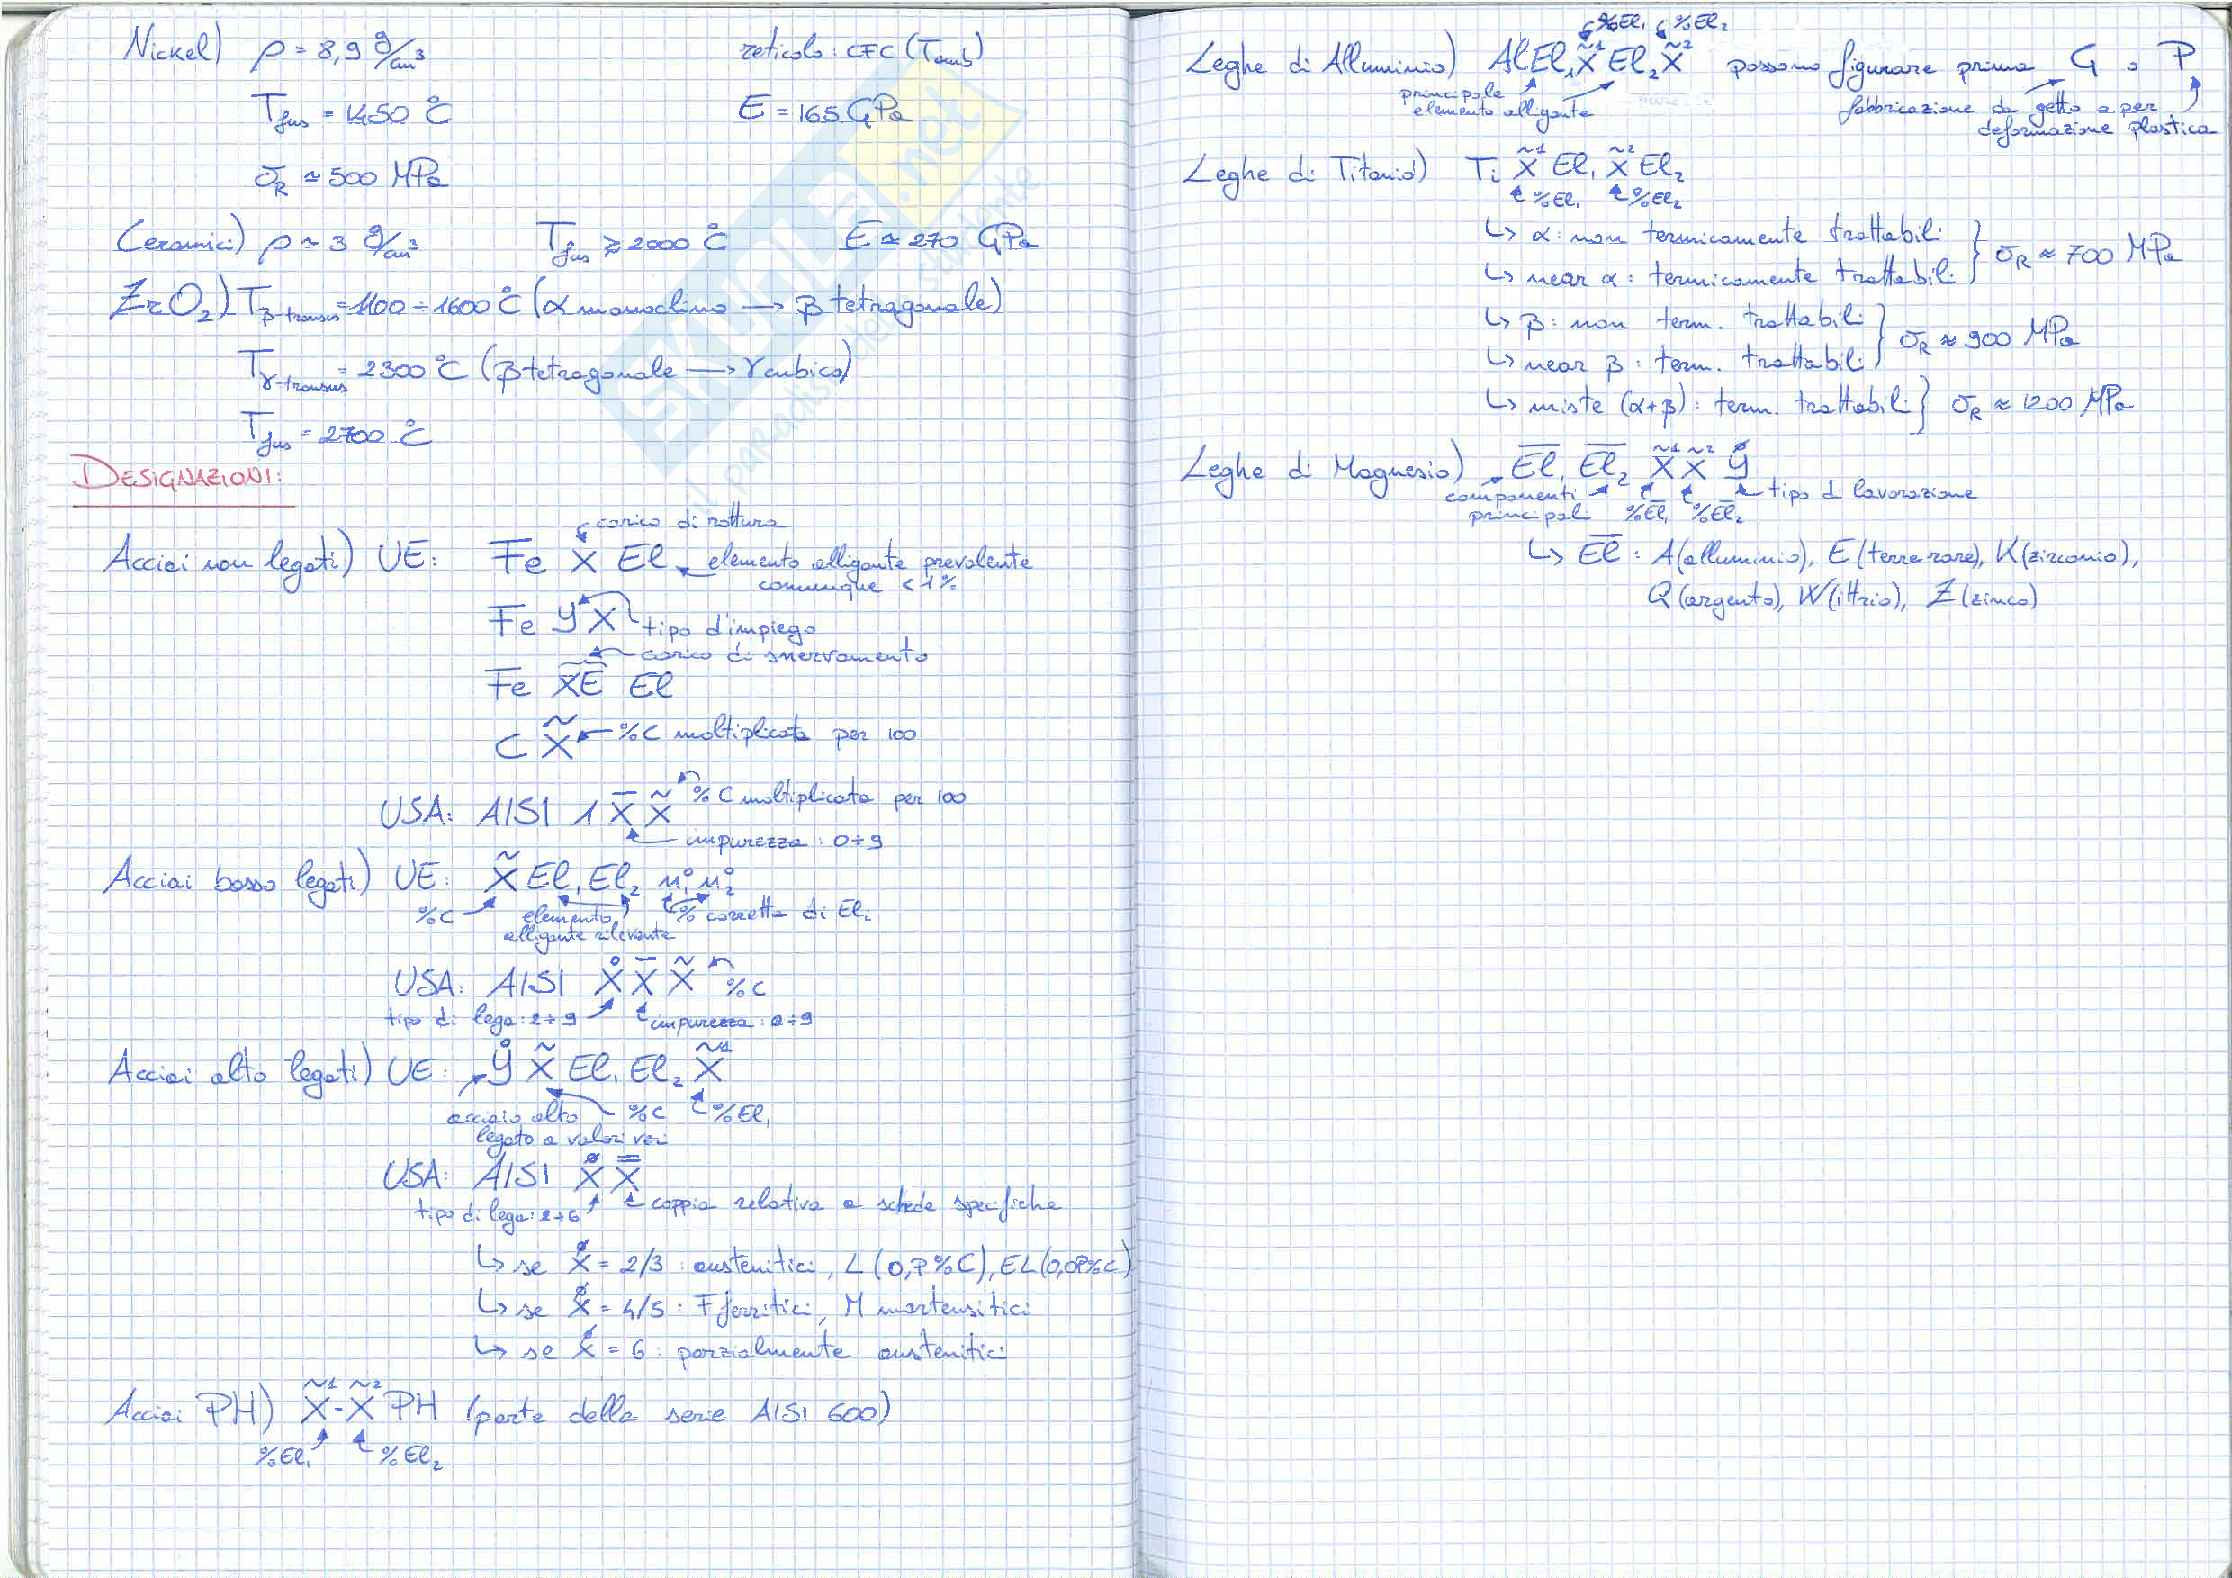 Nickel) ρ = 8,9 g/cm³ reticolo: CFC (Tamb)
Tfus = 1450 °C E = 165 GPa
σR ≈ 500 MPa
Ceramici) ρ ≈ 3 g/cm³ Tfus ≥ 2000 °C E ≈ 270 GPa
ZrO₂) Tβ-transus = 1100 ÷ 1600 °C (α monoclino → β tetragonale)
Tγ-transus = 2300 °C (β tetragonale → γ cubico)
Tfus = 2700 °C
DESIGNAZIONI:
carico di rottura
Acciai non legati) UE: Fe X El elemento alligante prevalente
comunque < 1%
Fe y X tipo d'impiego
carico di snervamento
Fe XE El
C X̃ %C moltiplicata per 100
USA: AISI 1 X̄ X̃ %C moltiplicata per 100
impurezza: 0÷9
Acciai basso legati) UE: X̃ El₁ El₂ n₁° n₂°
%C elemento % corretta di Eli
alligante rilevante
USA: AISI X̊ X̄ X̃ %C
tipo di lega: 2÷9 impurezza: 0÷9
Acciai alto legati) UE: ẙ X̃ El₁ El₂ X̃¹
acciaio alto %C %El₁
legato a valori veri
USA: AISI X̊ X̿
tipo di lega: 2÷6 coppia relativa a schede specifiche
↳ se X̊ = 2/3: austenitici, L (0,?%C), EL (0,0?%C)
↳ se X̊ = 4/5: F ferritici, M martensitici
↳ se X̊ = 6: parzialmente austenitici
Acciai PH) X̃¹-X̃² PH (parte della serie AISI 600)
%El₁ %El₂
%El₁ %El₂
Leghe di Alluminio) AlEl₁X̃¹El₂X̃² possono figurare prima G o P
principale elemento alligante
fabbricazione da getto o per deformazione plastica
Leghe di Titanio) Ti X̃¹ El₁ X̃² El₂
%El₁ %El₂
↳ α: non termicamente trattabili
↳ near α: termicamente trattabili } σR ≈ 700 MPa
↳ β: non term. trattabili
↳ near β: term. trattabili } σR ≈ 900 MPa
↳ miste (α+β): term. trattabili } σR ≈ 1200 MPa
Leghe di Magnesio) E̅l̅₁ E̅l̅₂ X̃¹ X̃² ẙ
componenti principali %El₁ %El₂ tipo di lavorazione
↳ E̅l̅: A (alluminio), E (terre rare), K (zirconio),
Q (argento), W (ittrio), Z (zinco)
SKUOLA.net
il paradiso dello studente